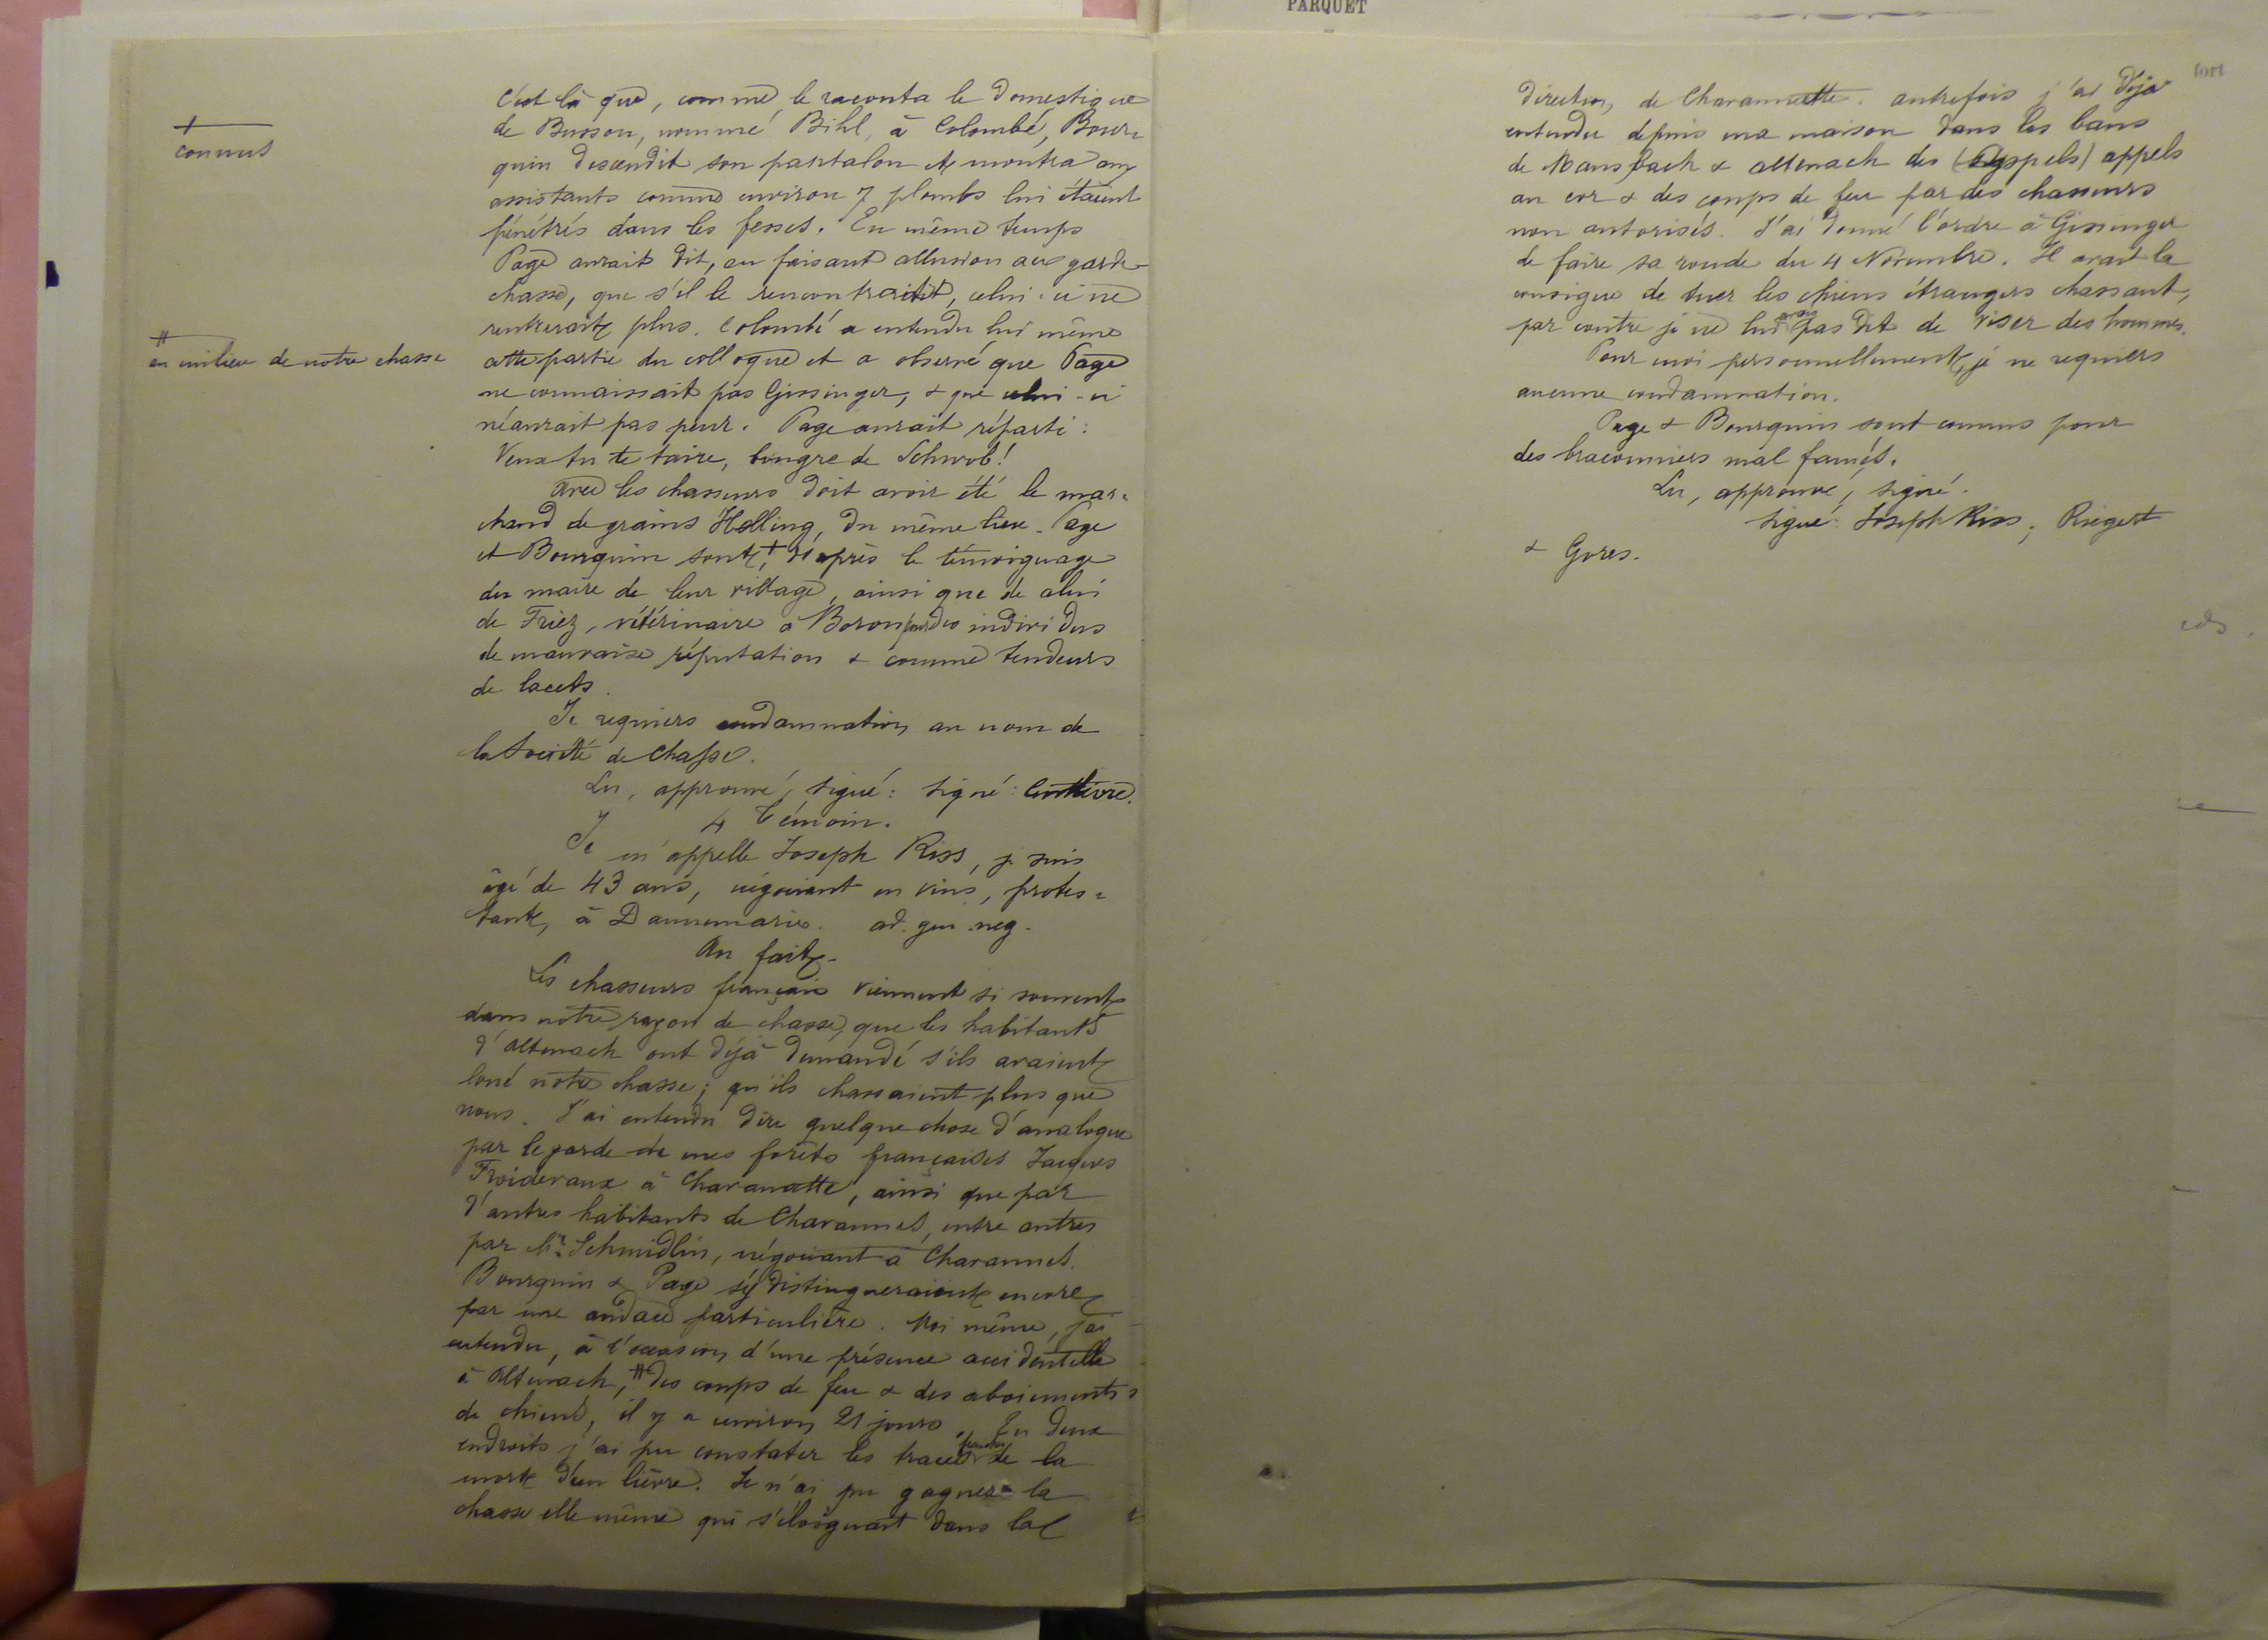 PARQUET
c'est là que, comme le raconta le domestique
de Busson, nommé Bihl, à Colombé, Bour=
quin descendit son pantalon & montra aux
assistants comme environ 7 plombs lui étaient
pénétrés dans les fesses. En même temps
Page aurait dit, en faisant allusion au garde
chasse, que s'il le rencontrait, celui-ci ne
rentrerait plus. Colombé a entendu lui même
cette partie du colloque et a observé que Page
ne connaissait pas Gissinger, & que celui-ci
n'aurait pas peur. Page aurait réparti:
Veux tu te taire, bougre de Schwob!
Avec les chasseurs doit avoir été le mar=
chand de grains Holling, du même lieu. Page
et Bourquin sont + d'après le témoignage
du maire de leur village, ainsi que de celui
de Friez, vétérinaire à Boron pour des individus
de mauvaise réputation & comme tendeurs
de lacets.
+
connus
Je requiers condamnation au nom de
la Société de Chasse.
Lu, approuvé, signé: signé:
4 Témoin.
Je m'appelle Joseph Riss, je suis
âgé de 43 ans, négociant en vins, protes=
tant, à Dannemarie. ad. gen. neg.
Au fait.
Les chasseurs français viennent si souvent
dans notre rayon de chasse, que les habitants
d'Altenach ont déjà demandé s'ils avaient
loué notre chasse; qu'ils chassaient plus que
nous. J'ai entendu dire quelque chose d'analogue
par le garde de mes forêts françaises Jacques
Froideveaux à Chavanatte, ainsi que par
d'autres habitants de Chavannes, entre autres
par Mr. Schmidlin, négociant à Chavannes.
Bourquin & Page s'y distingueraient encore
par une audace particulière. Moi même, j'ai
entendu, à l'occasion d'une présence accidentelle
à Altenach, # des coups de feu & des aboiements
de chiens, il y a environ 21 jours. En deux
endroits j'ai pu constater les traces de la
mort d'un lièvre. Je n'ai pu gagner la
chasse elle même qui s'éloignait dans la
#
en milieu de notre chasse
direction de Chavannette. autrefois j'ai déjà
entendu depuis ma maison dans les bans
de Mansbach & Altenach des (Appels) appels
au cor & des coups de feu par des chasseurs
non autorisés. J'ai donné l'ordre à Gissinger
de faire sa ronde du 4 Novembre. Il avait la
consigne de tuer les chiens étrangers chassant,
par contre je ne lui avais pas dit de viser des hommes.
Pour moi personnellement, je ne requiers
aucune condamnation.
Page & Bourquin sont connus pour
des braconniers mal famés.
Lu, approuvé, signé.
signé: Joseph Riss, Riegert
& Gores.